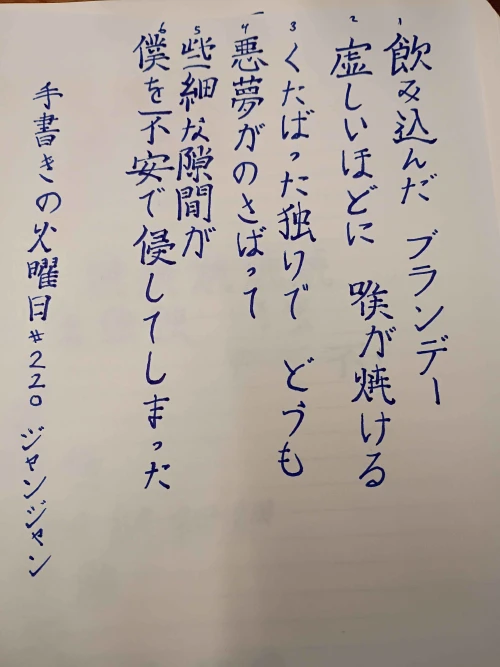 1 飲み込んだ ブランデー
2 虚しいほどに 喉が焼ける
3 くたばった独りで どうも
4 悪夢がのさばって
5 些細な隙間が
6 僕を不安で侵してしまった
手書きの火曜日#220 ジャンジャン